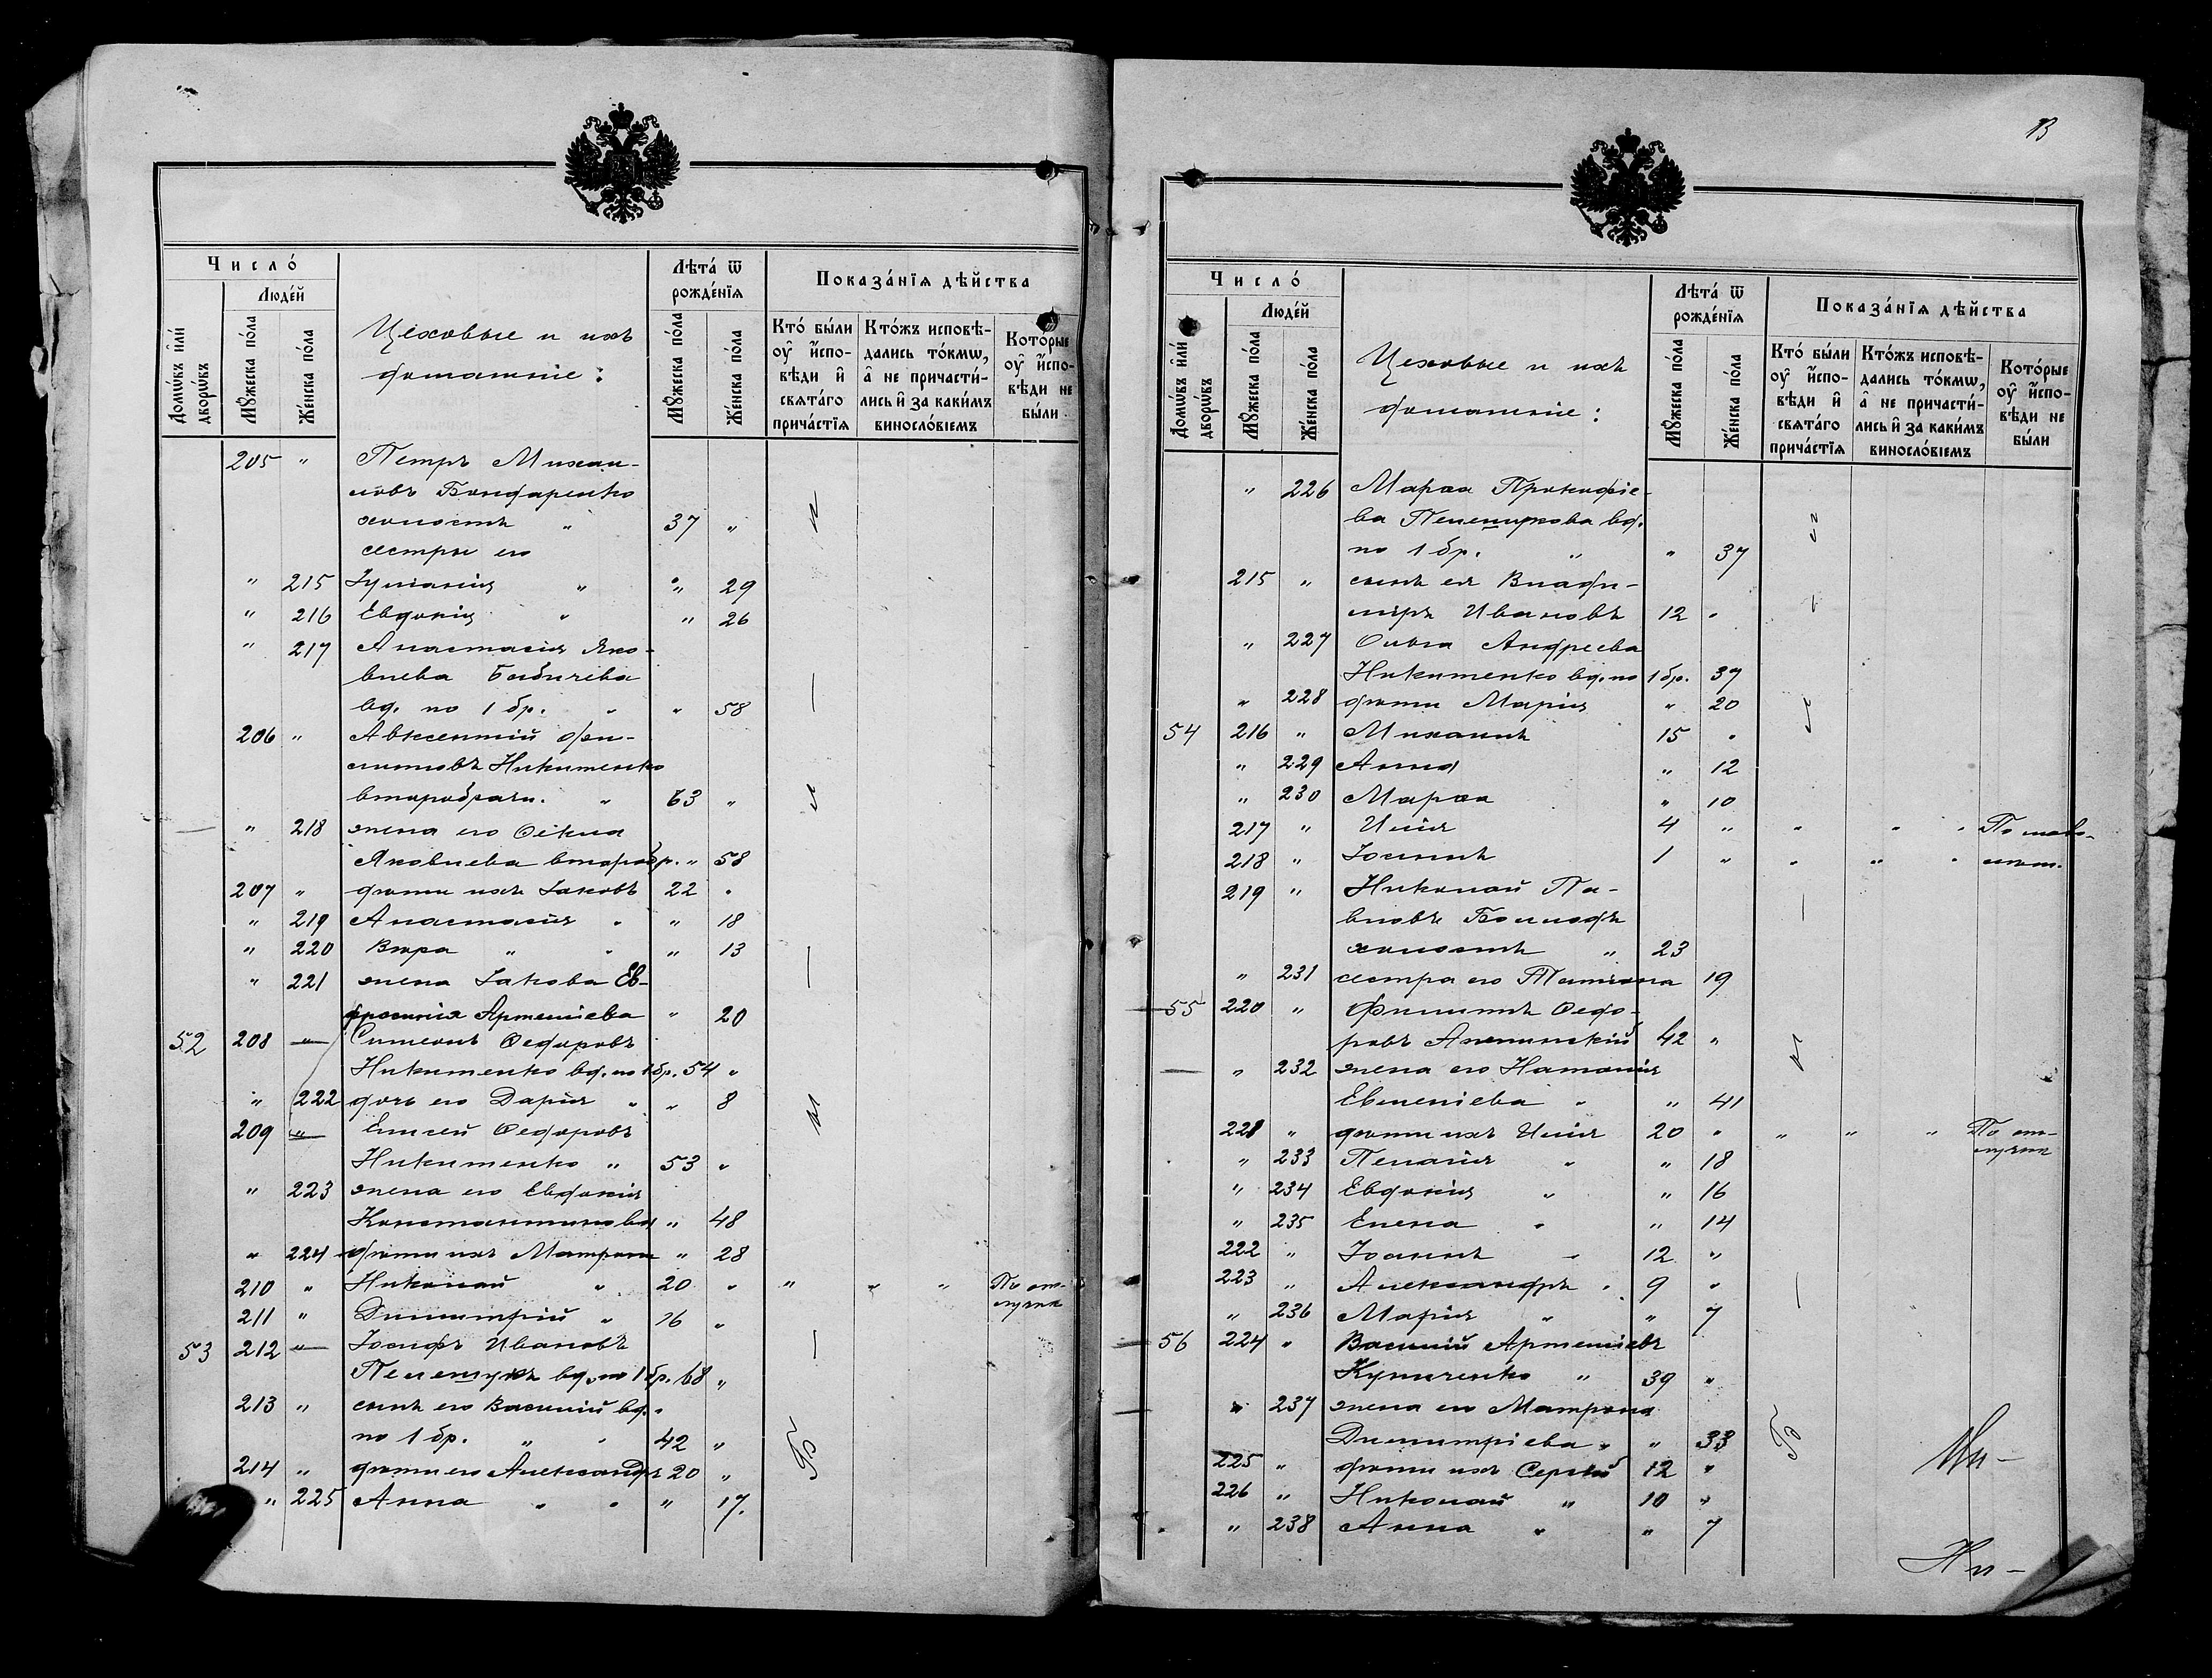 Число́
Люде́й
Домѡ́въ и҆лѝ дворѡ́въ
Мꙋ́жеска по́ла
Же́нска по́ла
Цеховые и ихъ
домашніе:
Лѣта́ ѿ
рожде́нїѧ
Мꙋ́жеска по́ла
Же́нска по́ла
Показа́нїѧ дѣ́йства
Кто́ бы́ли
ᲂу҆ и҆спо-
вѣди и҆
свѧта́го
прича́стїѧ
Кто́жъ исповѣ́-
дались то́кмѡ,
а҆ не причасти́-
лись и҆ за каки́мъ
винославіемъ
Кото́рые
ᲂу҆ и҆спо-
вѣди не
бы́ли
205 " Петръ Михаи-
ловъ Бондаренко
холостъ " 37 "
сестры его
" 215 Іуліанія " " 29
" 216 Евдокія " " 26
" 217 Анастасія Яко-
влева Бабичева
вд. по 1 бр. " " 58
206 " Авксентій Фи-
липповъ Никитенко
второбрачн. " 63 "
" 218 жена его Ѳекла
Яковлева второбр. " 58
207 " дѣти ихъ Іаковъ 22 "
" 219 Анастасія " " 18
" 220 Вѣра " " " 13
" 221 жена Іакова Ев-
фросинія Артеміева " 20
52 208 " Симеонъ Ѳедоровъ
Никитенко вд. по 1 бр. 54 "
" 222 дочь его Дарія " " 8
209 " Елисей Ѳедоровъ
Никитенко " 53 "
" 223 жена его Евдокія
Константинова " 48
" 224 дѣти ихъ Матрона " 28
210 " Николай " 20 " " " " По от-
лучкѣ
211 " Димитрій " 16 "
53 212 " Іосифъ Ивановъ
Пелешукъ вд. по 1 бр. 68 "
213 " сынъ его Василій вд.
по 1 бр. " " 42 "
214 " дѣти его Александръ 20 "
" 225 Анна " " " 17.
Число́
Люде́й
Домѡ́въ и҆лѝ дворѡ́въ
Мꙋ́жеска по́ла
Же́нска по́ла
Цеховые и ихъ
домашніе:
Лѣта́ ѿ
рожде́нїѧ
Мꙋ́жеска по́ла
Же́нска по́ла
Показа́нїѧ дѣ́йства
Кто́ бы́ли
ᲂу҆ и҆спо-
вѣди и҆
свѧта́го
прича́стїѧ
Кто́жъ исповѣ́-
дались то́кмѡ,
а҆ не причасти́-
лись и҆ за каки́мъ
винославіемъ
Кото́рые
ᲂу҆ и҆спо-
вѣди не
бы́ли
" 226 Марѳа Прокофіе-
ва Пелешукова вд.
по 1 бр. " " 37
215 " сынъ ея Влади-
міръ Ивановъ 12 "
" 227 Ольга Андреева
Никитенко вд. по 1 бр. 37
" 228 дѣти Марія " 20
54 216 " Михаилъ 15 "
" 229 Анна " 12
" 230 Марѳа " 10
217 " Илія 4 " " " " По мало-
218 " Іоаннъ 1 " " " " лѣт.
219 " Николай Па-
вловъ
холостъ " 23
" 231 сестра его Татіана 19
55 220 " Филиппъ Ѳедо-
ровъ 42 "
" 232 жена его Наталія
Евгеніева " " 41
221 " дѣти ихъ Илія 20 " " " " По от-
лучкѣ
" 233 Пелагія " " 18
" 234 Евдокія " " 16
" 235 Елена " " 14
222 " Іоаннъ " 12 "
223 " Александръ " 9 "
" 236 Марія " " 7
56 224 " Василій Артеміевъ
Куниченко " 39 "
" 237 жена его Матрона
Димитріева " " 33
225 " дѣти ихъ Сергѣй 12 "
226 " Николай " 10 "
" 238 Анна " " 7